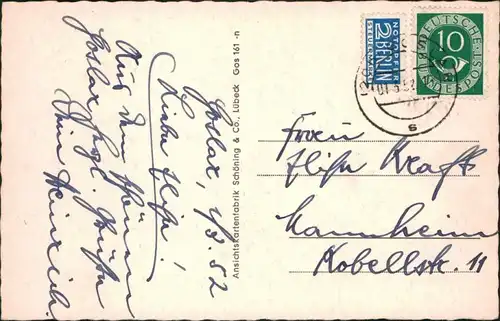 Goslar, 1/3.52
Liebe Elise!
Aus dem schönen
Goslar hzgl. Grüße
Dein Heinrich.
Ansichtskartenfabrik Schöning & Co., Lübeck Gos 161-n
NOTOPFER
2 BERLIN
STEUERMARKE
DEUTSCHE
10
BUNDESPOST
Frau
Elise Kraft
Mannheim
Kobellstr. 11